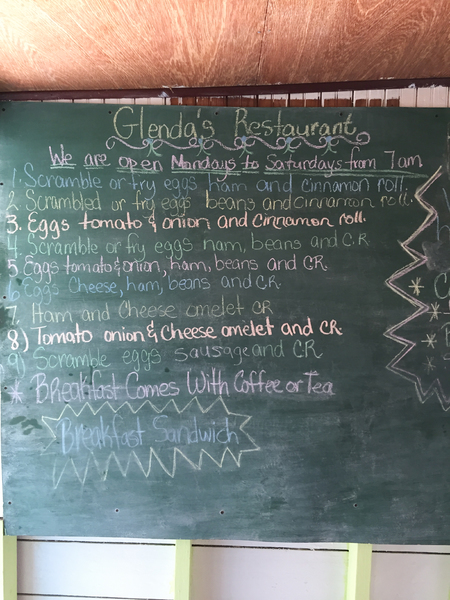 Glenda's Restaurant
We are open Mondays to Saturdays from 7am
1. Scramble or fry eggs ham and cinnamon roll.
2. Scrambled or fry eggs beans and cinnamon roll.
3. Eggs tomato & onion and Cinnamon roll.
4. Scramble or fry eggs ham, beans and C.R.
5. Eggs tomato & onion, ham, beans and C.R.
6. Eggs Cheese, ham, beans and C.R.
7. Ham and Cheese omelet CR
8) Tomato onion & Cheese omelet and CR.
9) Scramble eggs sausage and C.R
* Breakfast Comes With Coffee or Tea
Breakfast Sandwich